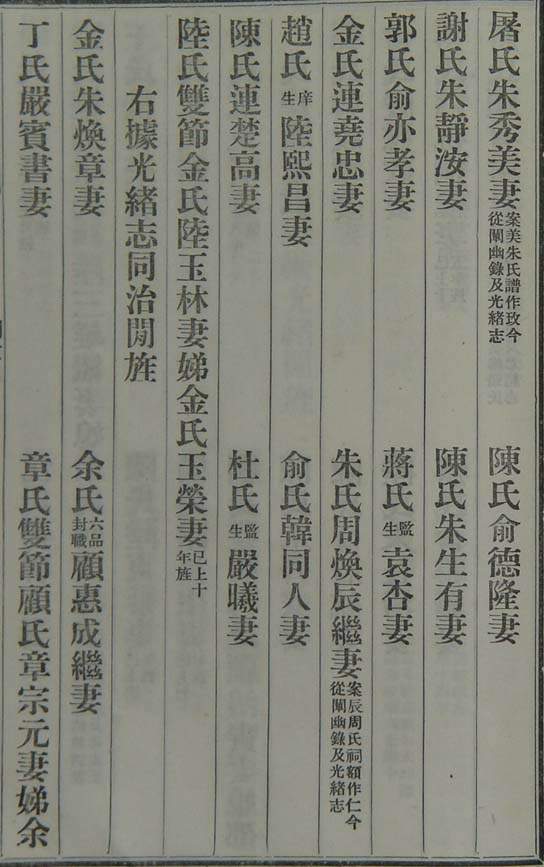 屠氏朱秀美妻案美朱氏譜作玫今從闡幽錄及光緒志　陳氏俞德隆妻
謝氏朱靜汝妻　陳氏朱生有妻
郭氏俞亦孝妻　蔣氏監生袁杏妻
金氏連堯忠妻　朱氏周煥辰繼妻案辰周氏祠額作仁今從闡幽錄及光緒志
趙氏庠生陸熙昌妻　俞氏韓同人妻
陳氏連楚高妻　杜氏監生嚴曦妻
陸氏雙節金氏陸玉林妻娣金氏玉榮妻已上十年旌
右據光緒志同治閒旌
金氏朱煥章妻　余氏六品封職顧惠成繼妻
丁氏嚴賓書妻　章氏雙節顧氏章宗元妻娣余